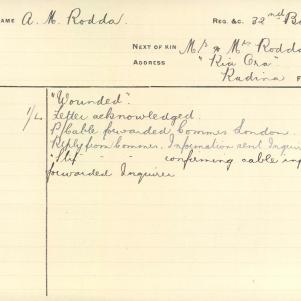 NAME A. M. Rodda. REG. &C. 32nd B
NEXT OF KIN Mr & Mrs Rodda
ADDRESS "Kia Ora"
Kadina F
"Wounded".
1/4 Letter acknowledged.
P/Cable forwarded Commr London.
Reply from Commr. Information sent Inquirer
" Slip " " confirming cable inq
forwarded Inquirer